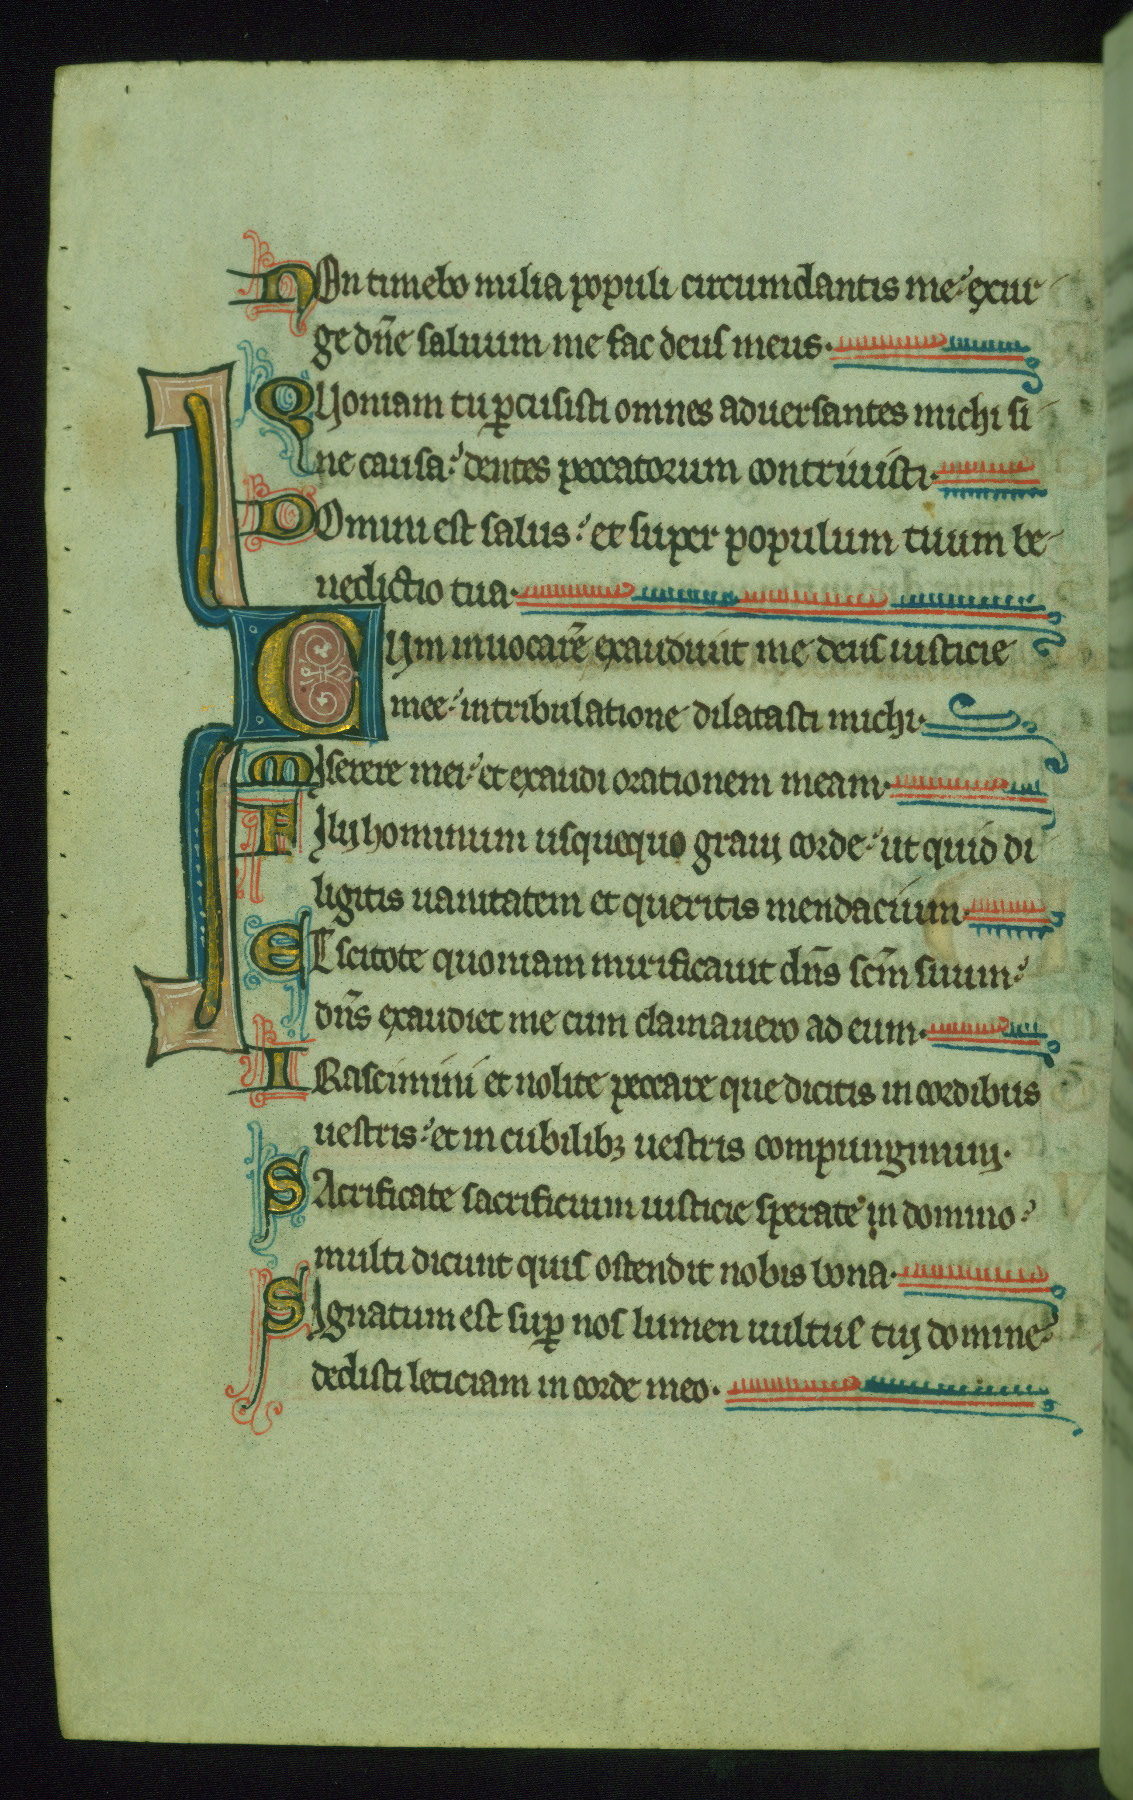 NOn timebo milia populi circumdantis me exur
ge dñe saluum me fac deus meus.
QUoniam tu ꝑcusisti omnes aduersantes michi si
ne causa dentes peccatorum contriuisti.
DOmini est salus et super populum tuum be
nedictio tua.
CUm inuocarẽ exaudiuit me deus iusticie
mee in tribulatione dilatasti michi.
MIserere mei et exaudi orationem meam.
FIlij hominum usquequo graui corde ut quid di
ligitis uanitatem et queritis mendacium.
ET scitote quoniam mirificauit dñs scm̃ suum
dñs exaudiet me cum clamauero ad eum.
IRascimini et nolite peccare que dicitis in cordibus
uestris et in cubilibꝫ uestris compungimini.
SAcrificate sacrificium iusticie sperate in domino
multi dicunt quis ostendit nobis bona.
SIgnatum est suꝑ nos lumen uultus tui domine
dedisti leticiam in corde meo.